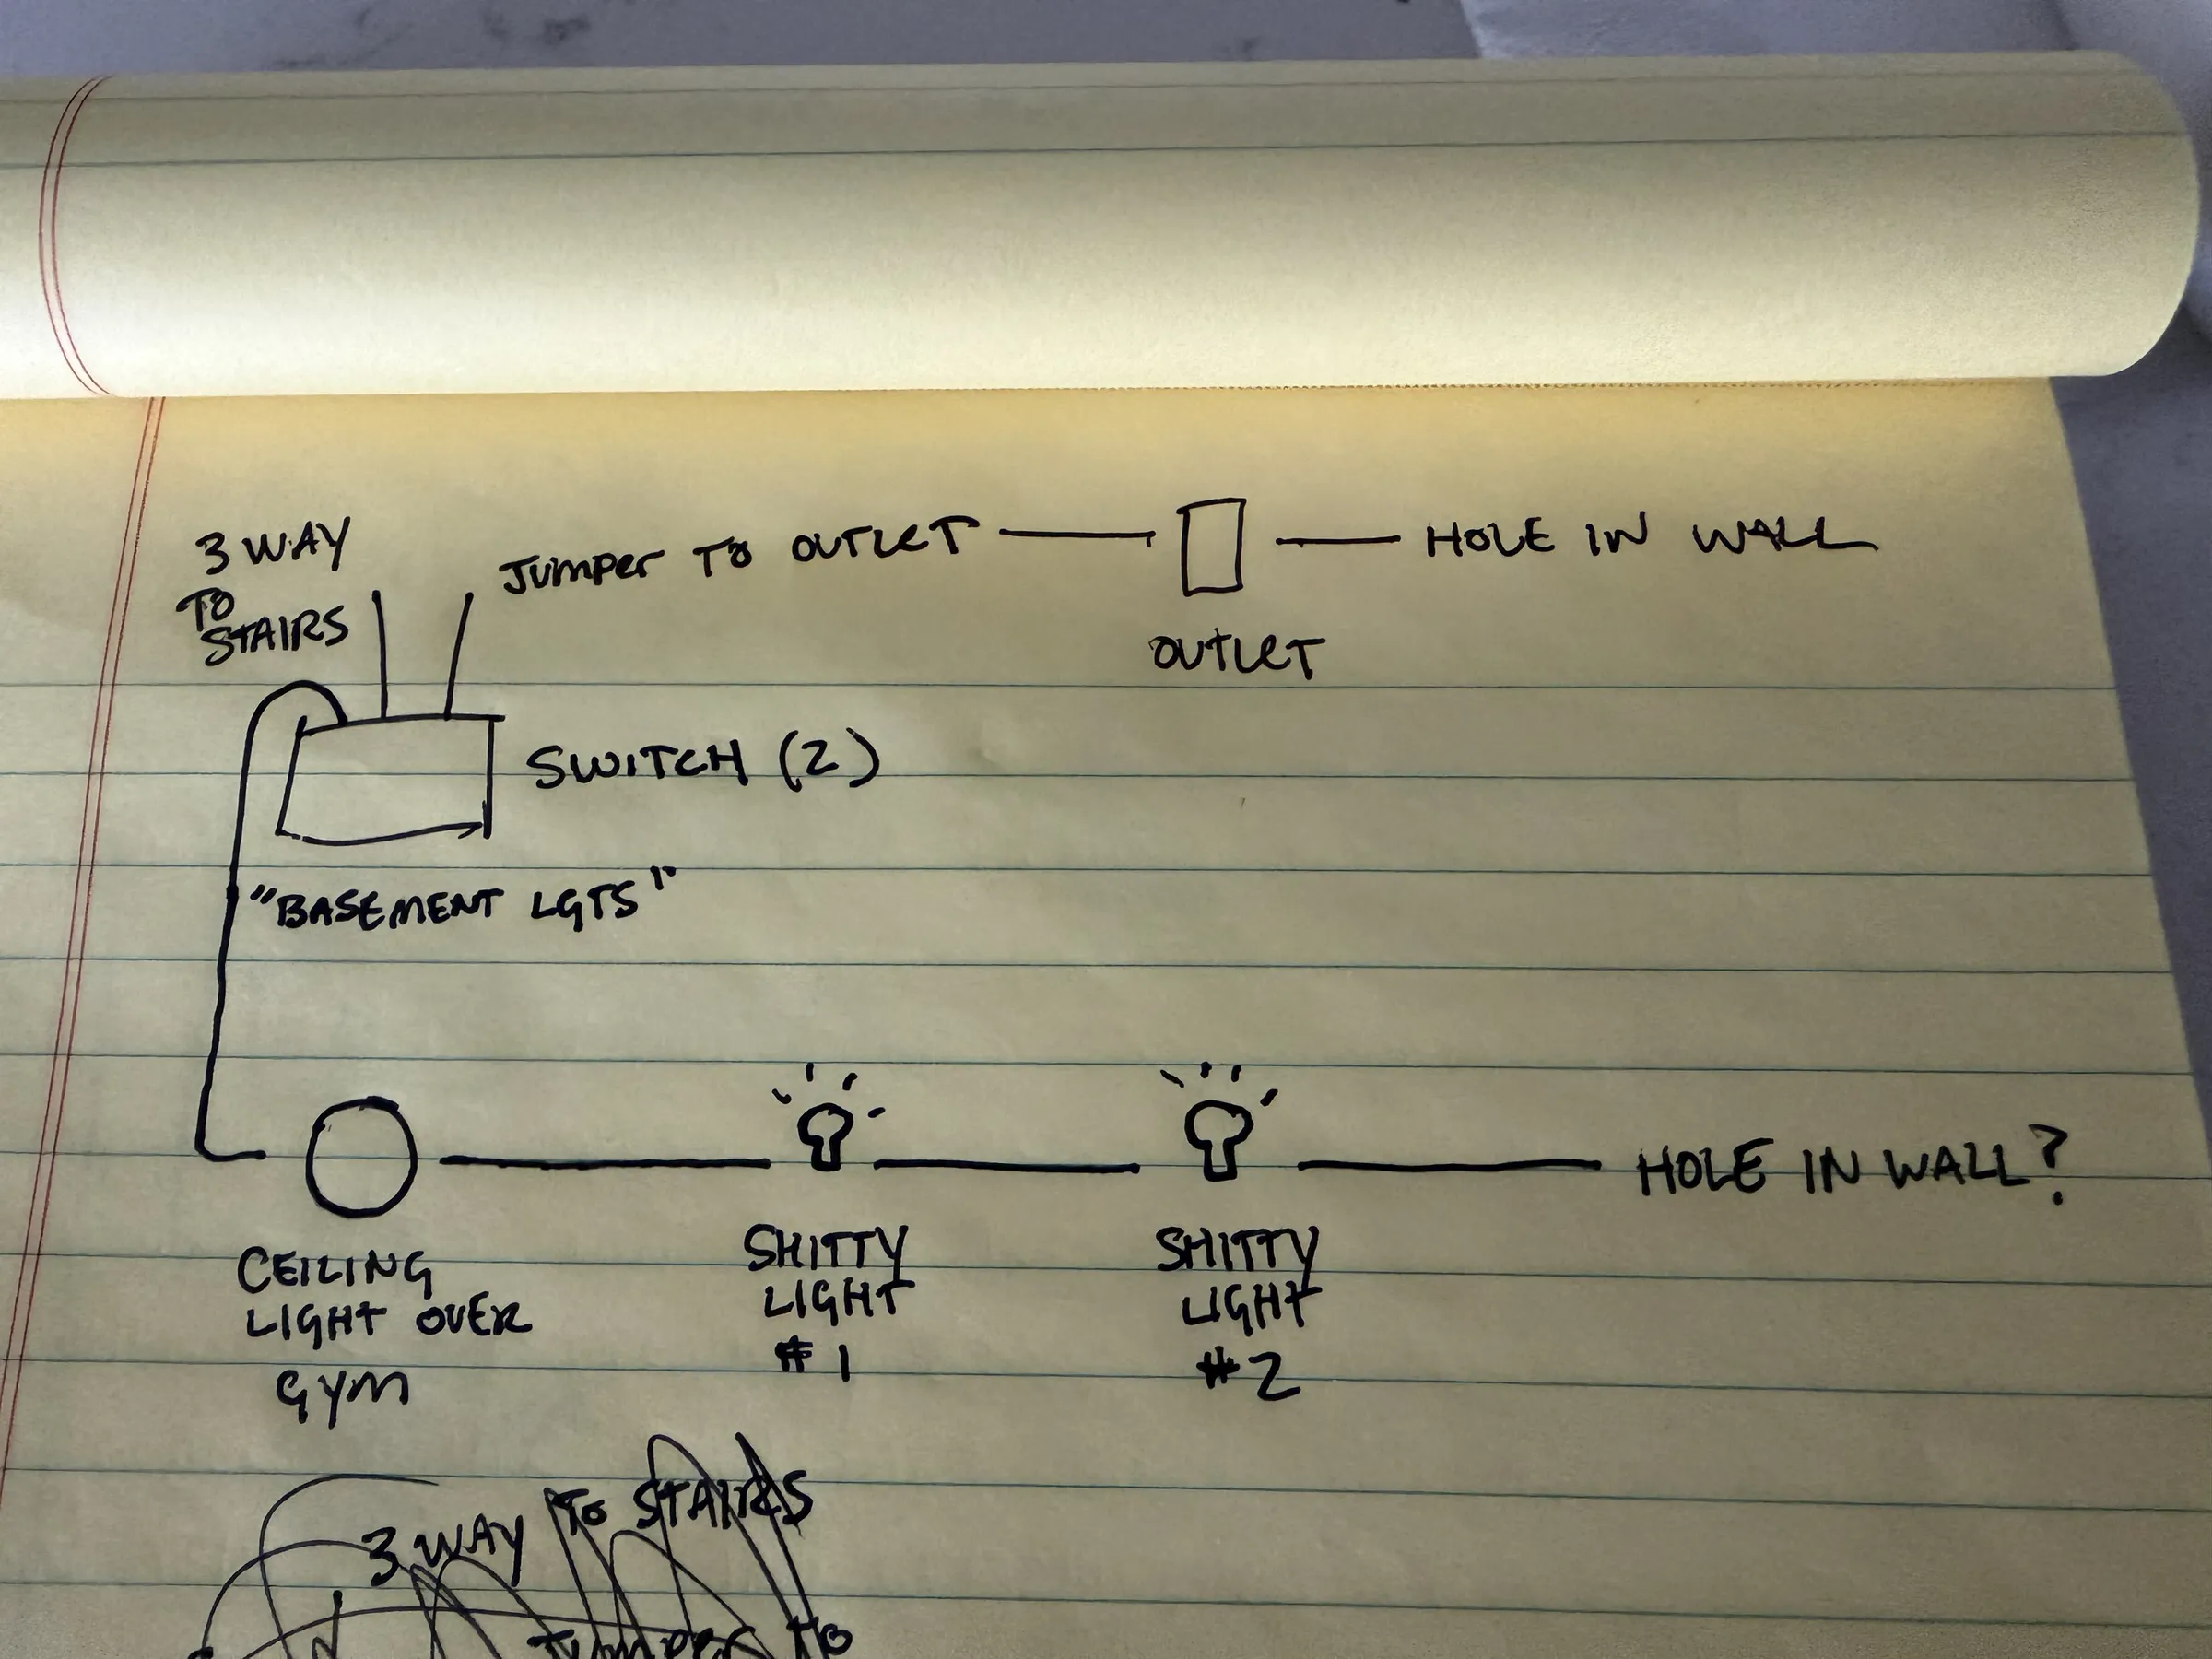 3 WAY
TO
STAIRS
Jumper TO OUTLET
HOLE IN WALL
OUTLET
SWITCH (2)
"BASEMENT LGTS"
HOLE IN WALL?
CEILING
LIGHT OVER
GYM
SHITTY
LIGHT
#1
SHITTY
LIGHT
#2
3 WAY TO STAIRS
Jumper to